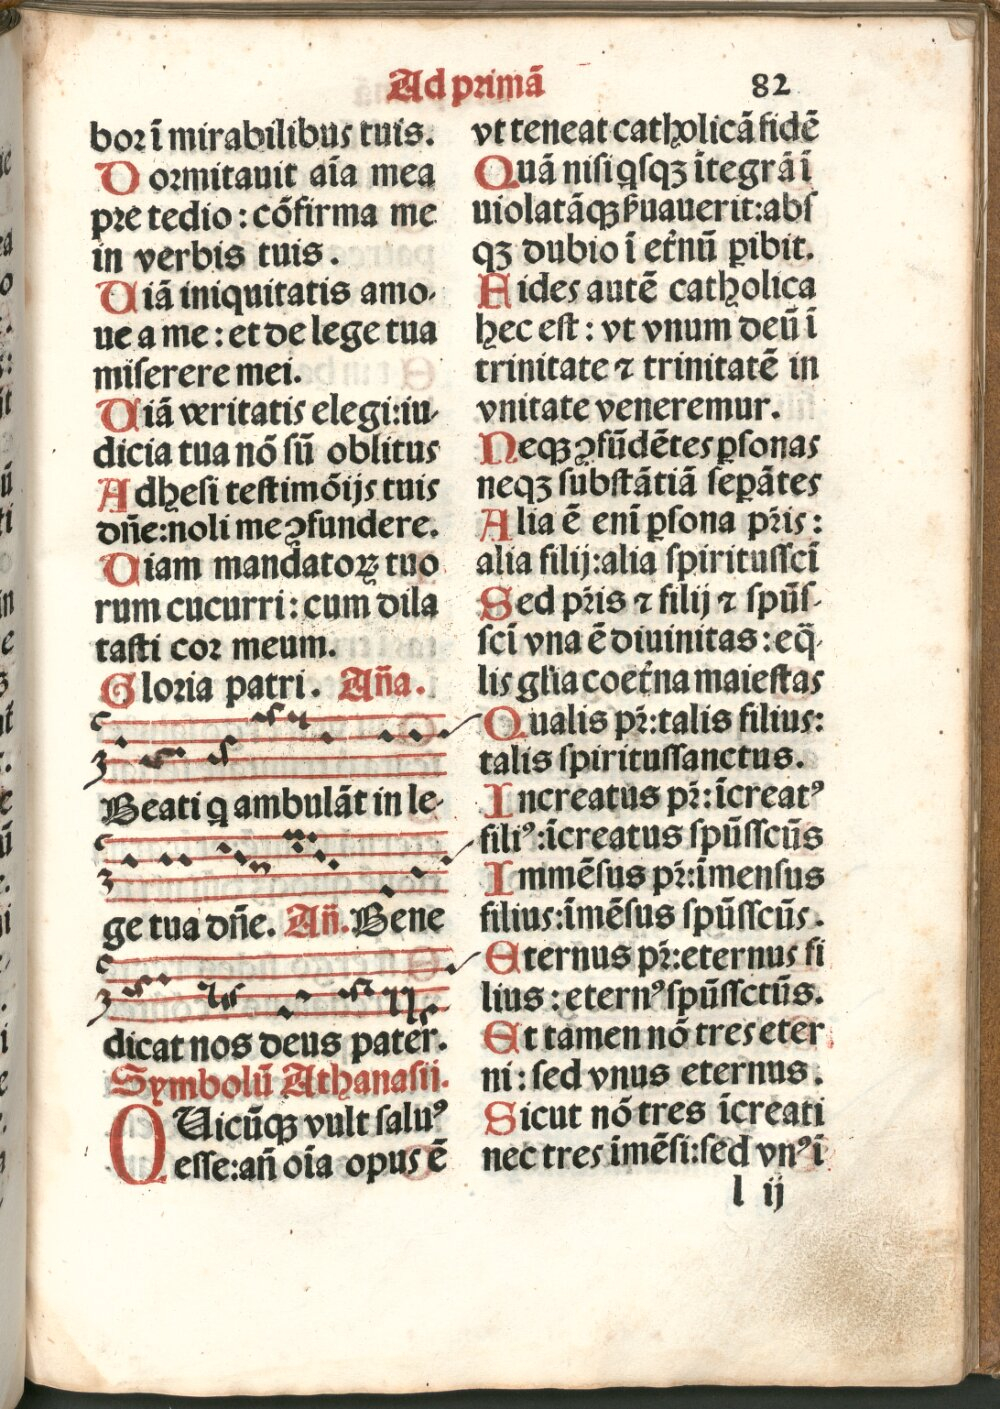 Ad primā
82
bor ī mirabilibus tuis.
Dormitauit aīa mea
pre tedio : cōfirma me
in verbis tuis.
Uiā iniquitatis amo-
ue a me : et de lege tua
miserere mei.
Uiā veritatis elegi:iu-
dicia tua nō sū oblitus
Adhesi testimōijs tuis
dñe:noli me ꝯfundere.
Uiam mandatoꝝ tuo
rum cucurri : cum dila
tasti cor meum.
Gloria patri. Aña.
Beati q ambulāt in le-
ge tua dñe. Añ. Bene
dicat nos deus pater.
Symbolū Athanasii.
QUicūqꝫ vult saluꝰ
esse:añ oīa opus ē
vt teneat catholicā fidē
Quā nisi qsqꝫ ītegrā ī
uiolatāqꝫ p̄uauerit:abs
qꝫ dubio ī et̄nū ꝑibit.
Fides autē catholica
hec est : vt vnum deū ī
trinitate ⁊ trinitatē in
vnitate veneremur.
Neqꝫ ꝯfūdētes ꝑsonas
neqꝫ substātiā seꝑātes
Alia ē enī ꝑsona pr̄is :
alia filij:alia spiritusscī
Sed pr̄is ⁊ filij ⁊ spūs-
scī vna ē diuinitas : eq̄-
lis gl̄ia coet̄na maiestas
Qualis pr̄:talis filius:
talis spiritussanctus.
Increatus pr̄:īcreatꝰ
filiꝰ:īcreatus spūsscūs
Immēsus pr̄:īmensus
filius:īmēsus spūsscūs.
Eternus pr̄:eternus fi
lius : eternꝰ spūssctūs.
Et tamen nō tres eter
ni : sed vnus eternus.
Sicut nō tres īcreati
nec tres īmēsi:sed vnꝰ ī
l ij